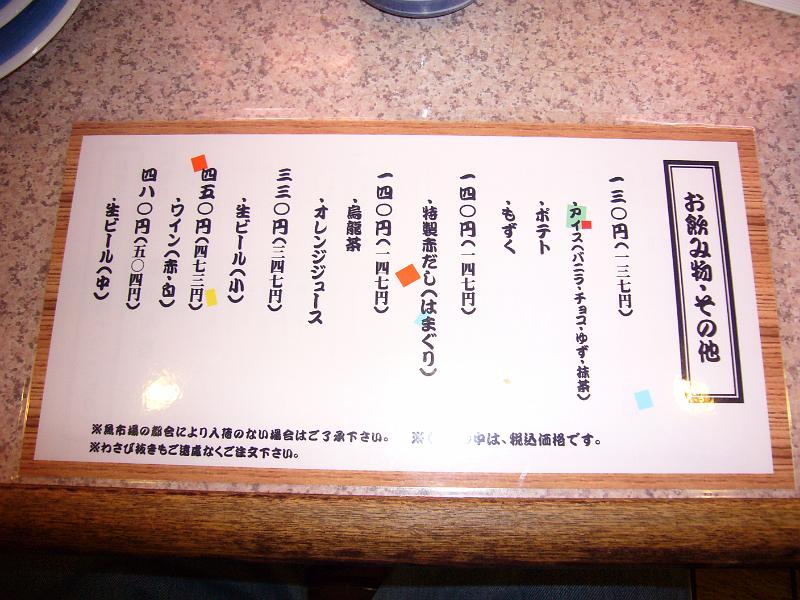 お飲み物・その他
一三〇円(一三七円)
・アイス(バニラ・チョコ・ゆず・抹茶)
・ポテト
・もずく
一四〇円(一四七円)
・特製赤だし(はまぐり)
一四〇円(一四七円)
・烏龍茶
・オレンジジュース
三三〇円(三四七円)
・生ビール(小)
四五〇円(四七三円)
・ワイン(赤・白)
四八〇円(五〇四円)
・生ビール(中)
※魚市場の都合により入荷のない場合はご了承下さい。 ※( の中は、税込価格です。
※わさび抜きもご遠慮なくご注文下さい。